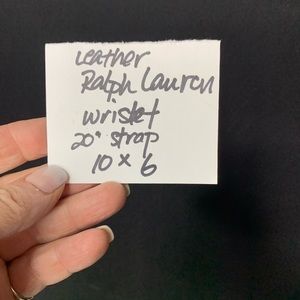 Leather
Ralph Lauren
wristlet
20" strap
10 x 6